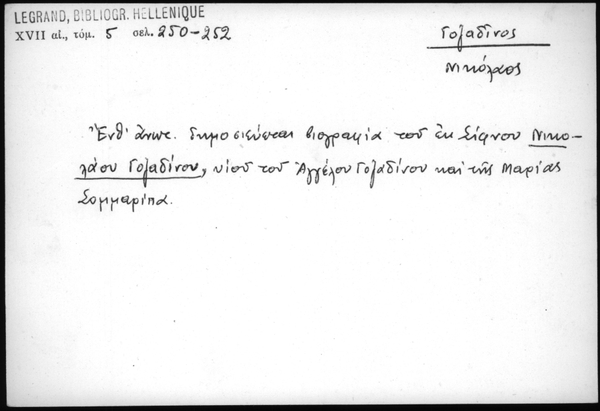 LEGRAND, BIBLIOGR. HELLENIQUE
XVII αἰ., τόμ. 5 σελ. 250-252
Γοζαδῖνος
Νικόλαος
Ἔνθ' ἄνωτ. δημοσιεύεται βιογραφία τοῦ ἐκ Σίφνου Νικο-
λάου Γοζαδίνου, υἱοῦ τοῦ Ἀγγέλου Γοζαδίνου καὶ τῆς Μαρίας
Σομμαρίπα.